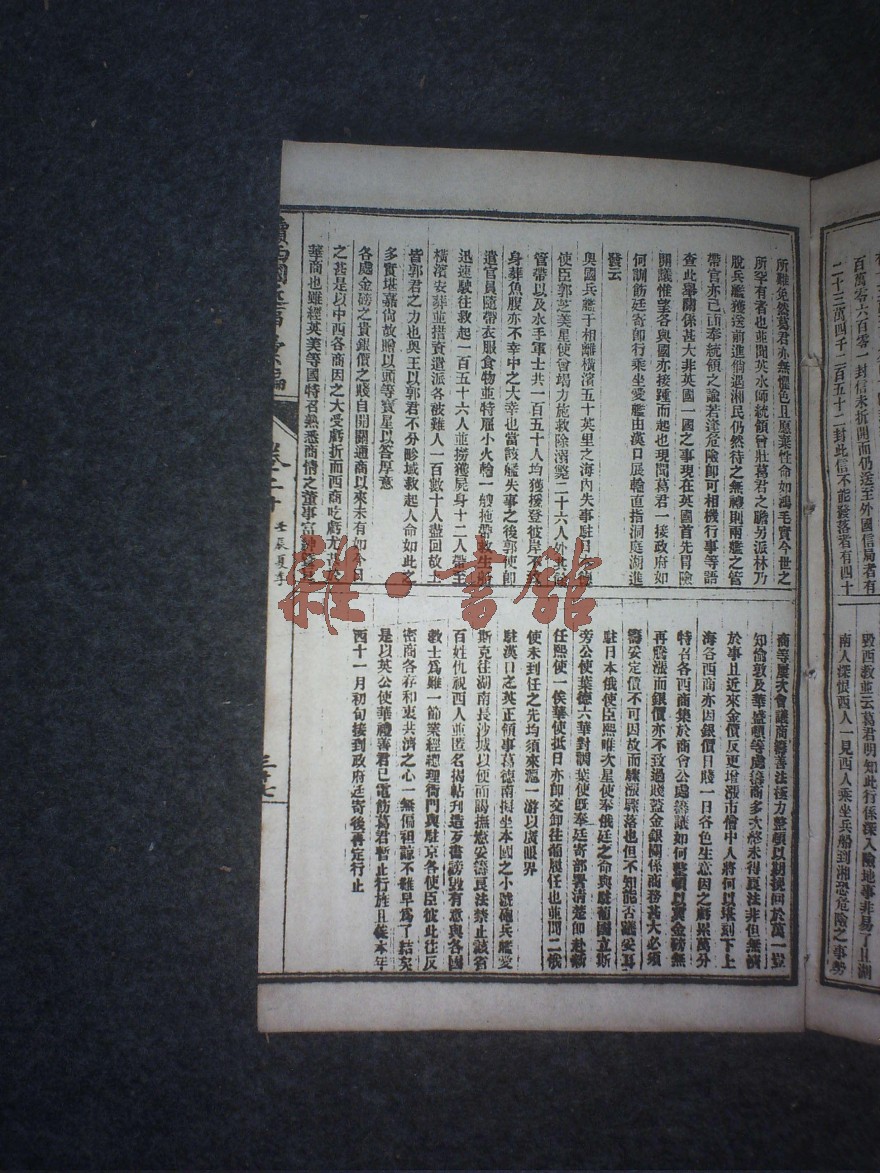 百萬零六百零一封信未拆開而仍送至外國信局者有
二十三萬四千二百五十二封此信不能發落者有四十
毀西教並云葛君明知此行係深入險地事非易了且湖
南人深恨西人一見西人乘坐兵船到湘恐危險之事勢
所難免然葛君亦無懼色且愿棄性命如鴻毛實今世之
所罕有者也並聞英水師統領曾壯葛君之膽另派林乃
脫兵艦護送前進倘遇湘民仍然待之無禮則兩艦之管
帶官亦已面奉統領之諭若逢危險卽可相機行事等語
查此舉關係甚大非英國一國之事現在英國首先冒險
開議惟望各與國亦接踵而起也現聞葛君一接政府如
何訓飭廷寄卽行乘坐愛艦由漢口展輪直指洞庭湖進
發云
奧國兵艦于相離橫濱五十英里之海內失事駐日
使臣郭芝美星使曾竭力施救除溺斃二十六人外其
管帶以及水手軍士共一百五十人均獲援登彼岸不致
身葬魚腹亦不幸中之大幸也當該艦失事之後郭使卽
遣官員隨帶衣服食物並特雇小火輪一艘拖帶救生船
迅速駛往救起一百五十六人並撈獲屍身十二人帶至
橫濱安葬並措資遣派各被難人一百數十人盡回故土
皆郭君之力也奧王以郭君不分畛域救起人命如此之
多實堪嘉尚故贈以頭等寶星以答厚意
各處金磅之貴銀價之賤自開關通商以來未有如今日
之甚是以中西各商因之大受虧折而西商吃虧尤甚於
華商也雖經英美等國特召熟悉商情之董事
商等屢次會議商籌善法極力整頓以期挽回於萬一豈
知倫敦及華盛頓等處議商多次終未得良法非但無濟
於事且近來金價反更增漲市儈中人將何以堪刻下上
海各西商亦因銀價日賤一日各色生意因之虧累萬分
特召各西商集於商會公處議如何整頓以冀金磅無
再騰漲而銀價亦不致過賤蓋金銀關係商務甚大必須
籌妥定價不可因故而驟漲驟落也但不知能否議妥耳
駐日本俄使臣熙唯次星使奉俄廷之命與駐葡國立斯
旁公使葉德六華對調葉使旣奉廷寄部署清楚卽赴
任熙使一俟華使抵日亦卽交卸往葡履任也並聞二俄
使未到任之先均須來滬一游以廣眼界
駐漢口之英正領事葛德南擬坐本國之小淺砲兵艦愛
斯克往湖南長沙城以便面謁撫憲妥籌良法禁止該省
百姓仇視西人並匿名揭帖刊造歹畫謗毀有意與各國
教士爲難一節業經總理衙門與駐京各使臣彼此往反
密商各存和衷共濟之心一無偏袒諒不難早爲了結矣
是以英公使華禮善君已電飭葛君暫止行旌且俟本年
西十一月初旬接到政府廷寄後再定行止
卷二十
壬辰夏季
三十七
雜·書館